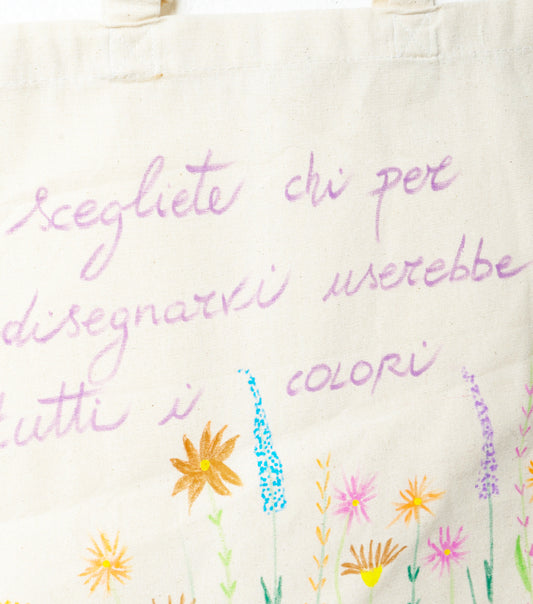 scegliete chi per
disegnarvi userebbe
tutti i COLORI